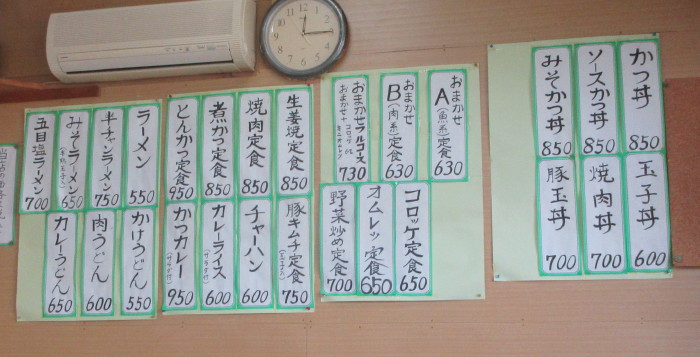 かつ丼 850
ソースかつ丼 850
みそかつ丼 850
玉子丼 600
焼肉丼 700
豚玉丼 700
おまかせ
A(魚系)定食 630
おまかせ
B(肉系)定食 630
730
コロッケ定食 650
オムレツ定食 650
野菜炒め定食 700
生姜焼定食 850
焼肉定食 850
煮かつ定食 850
とんかつ定食 950
豚キムチ定食 750
チャーハン 600
カレーライス (サラダ付) 600
かつカレー (サラダ付) 950
ラーメン 550
半チャンラーメン 750
みそラーメン 650
五目塩ラーメン 700
かけうどん 550
肉うどん 600
カレーうどん 650